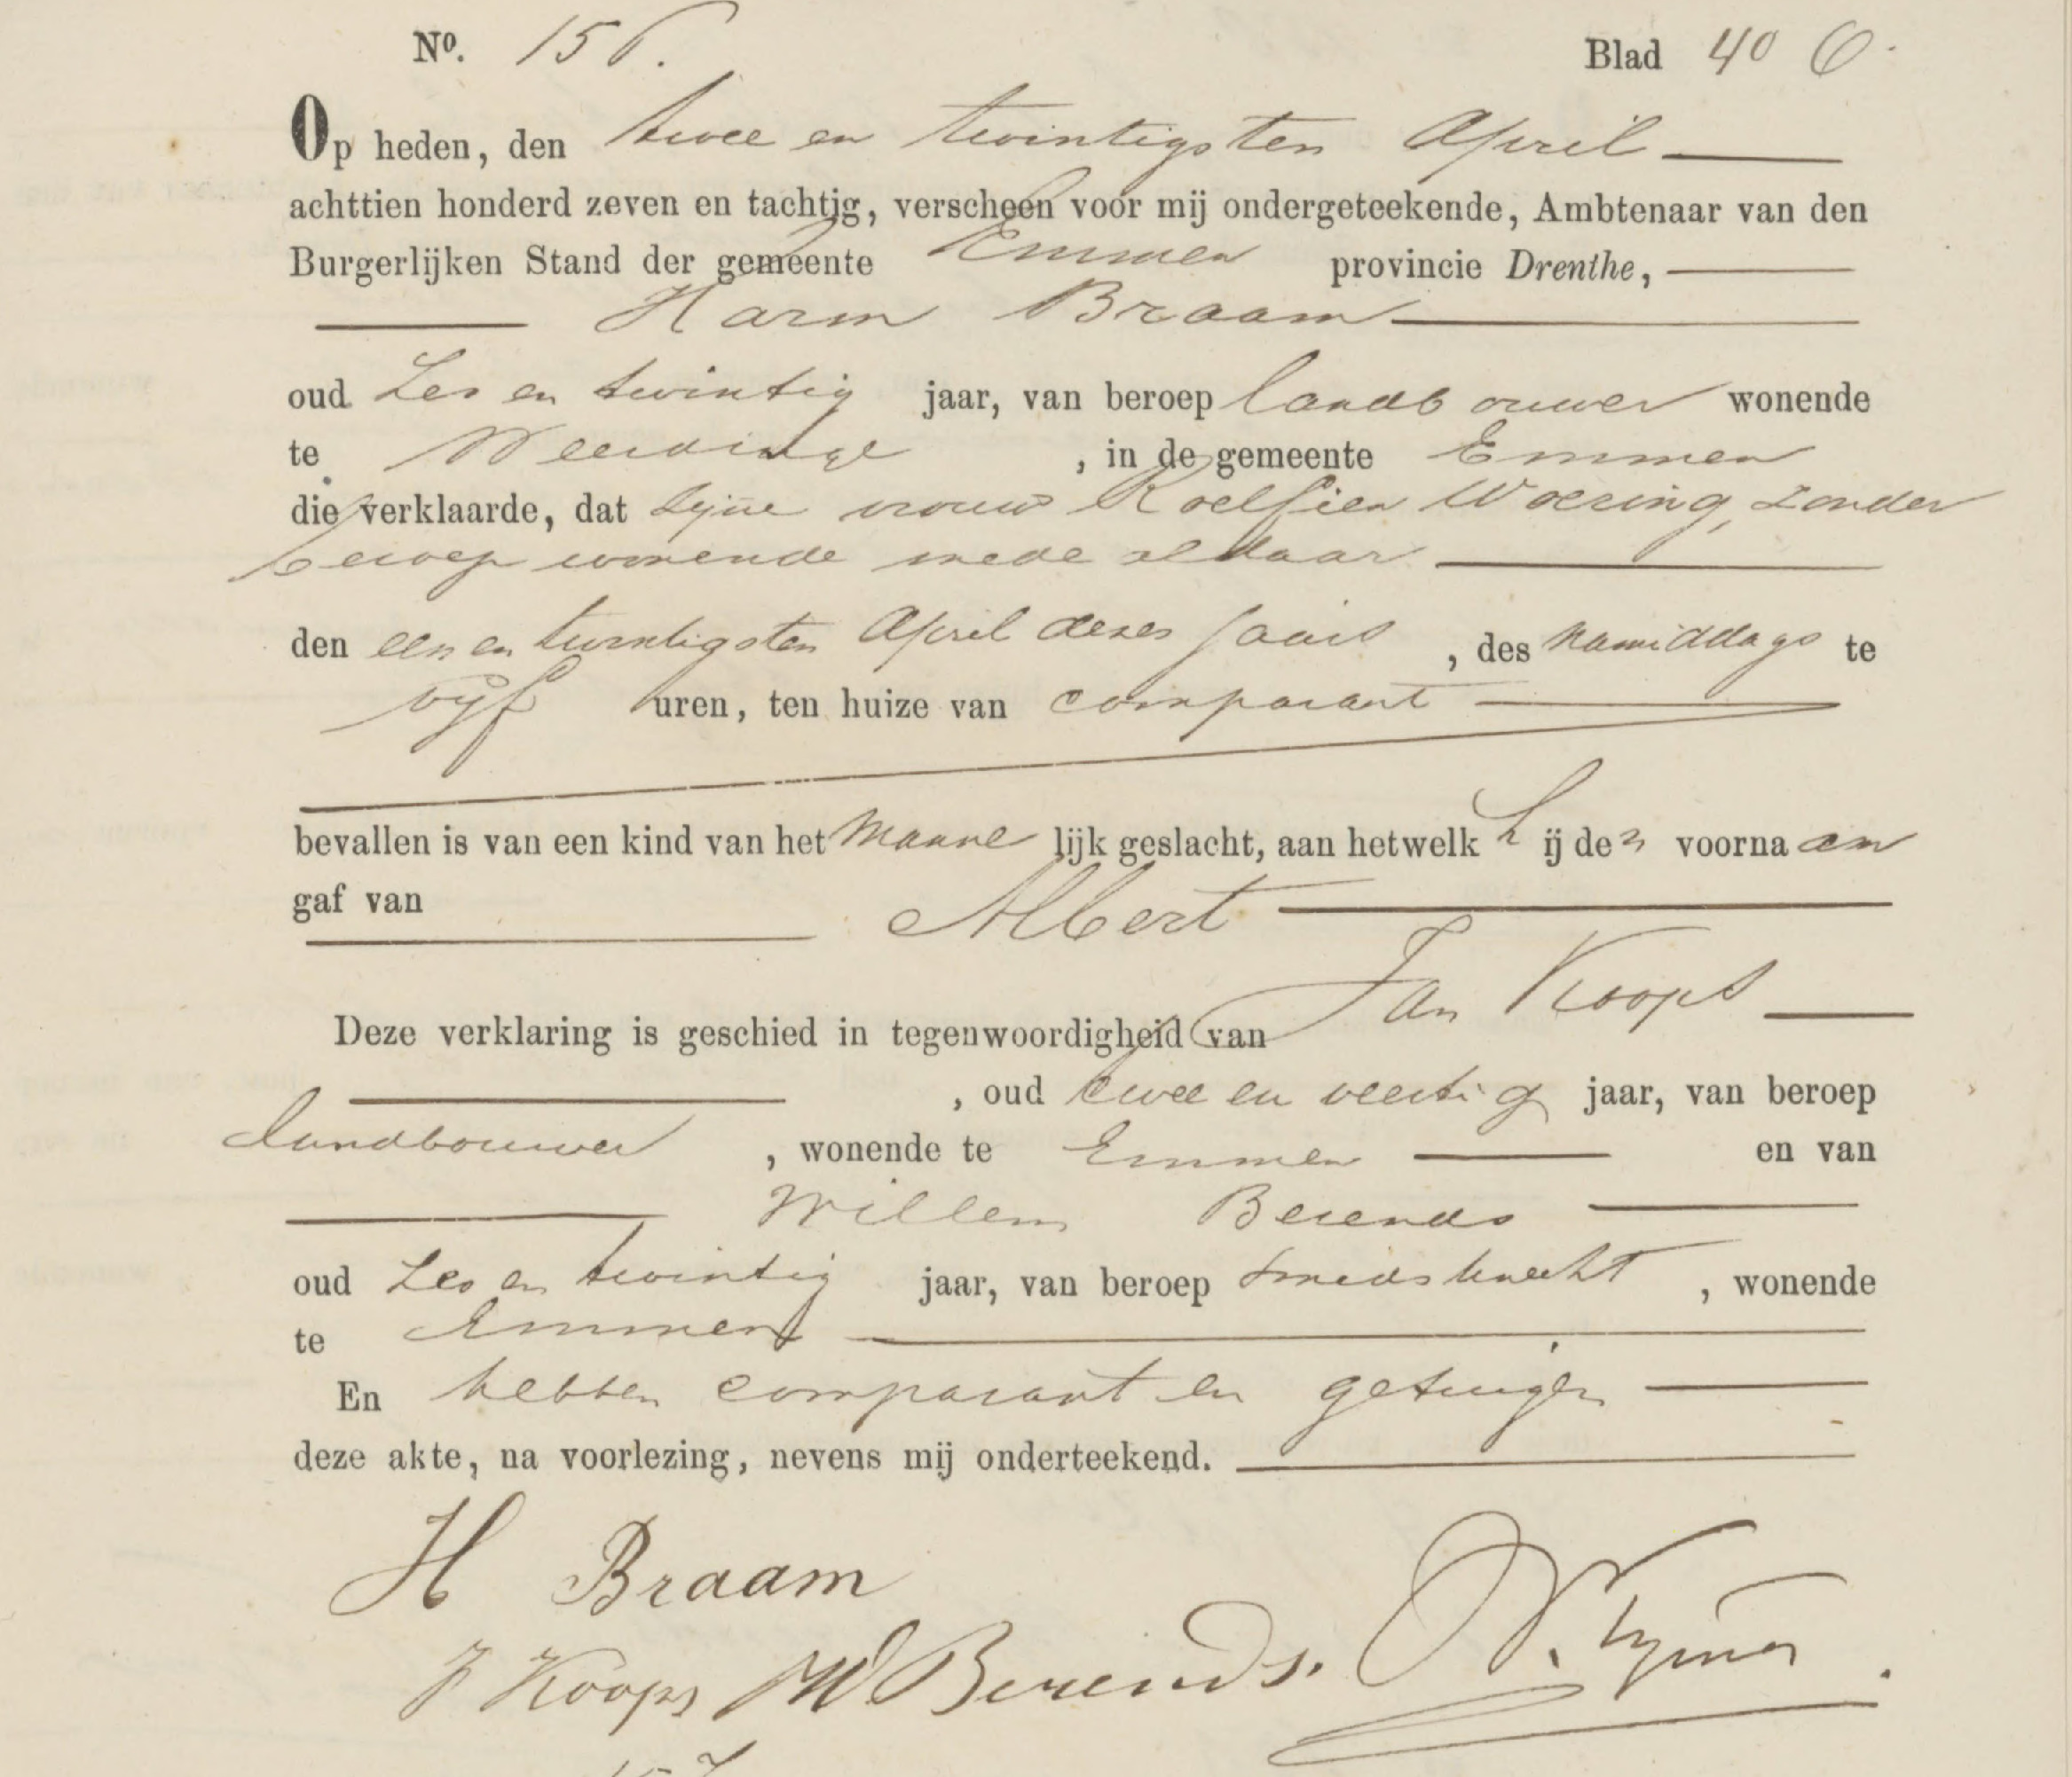 No. 156. Blad 40
Op heden, den twee en twintigsten April
achttien honderd zeven en tachtig, verscheen voor mij ondergeteekende, Ambtenaar van den
Burgerlijken Stand der gemeente Emmen provincie Drenthe,
Harm Braam
oud Zes en twintig jaar, van beroep landbouwer wonende
te Weerdinge, in de gemeente Emmen
die verklaarde, dat zijne vrouw Roelfien Woering, zonder
beroep wonende mede aldaar
den een en twintigsten April dezes jaars, des namiddags te
vijf uren, ten huize van comparant
bevallen is van een kind van het mannelijk geslacht, aan hetwelk hij den voornaam
gaf van Albert
Deze verklaring is geschied in tegenwoordigheid van Jan Koops
, oud twee en veertig jaar, van beroep
landbouwer, wonende te Emmen en van
Willem Berends
oud Zes en twintig jaar, van beroep smidsknecht, wonende
te Emmen
En hebben comparant en getuigen
deze akte, na voorlezing, nevens mij onderteekend.
H Braam
J Koops W Berends.